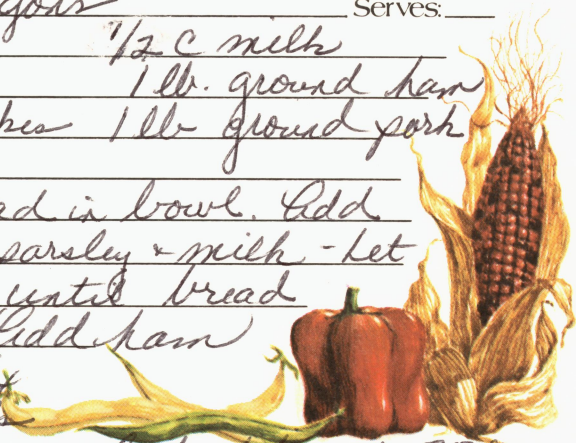 Serves:
1/2 c milk
1 lb. ground ham
1 lb ground pork
in bowl. Add
parsley & milk - Let
until bread
Add ham